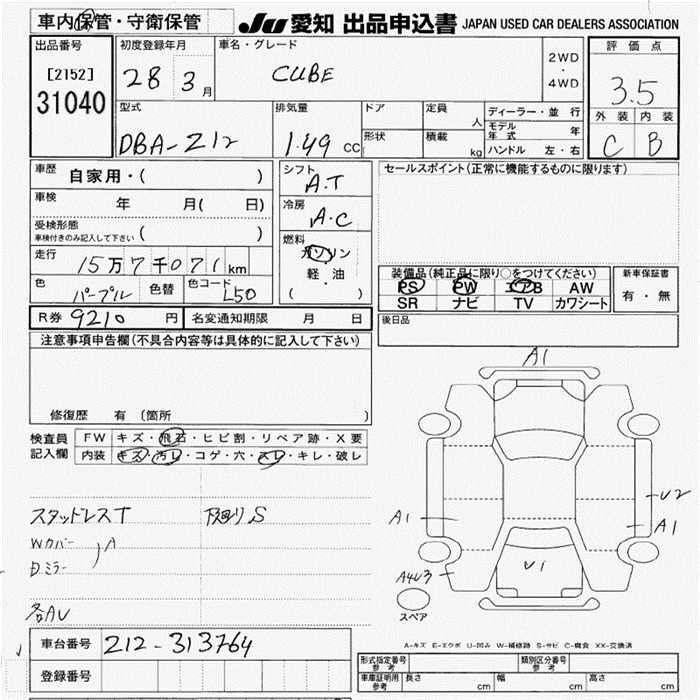 車内保管・守衛保管
JU 愛知 出品申込書 JAPAN USED CAR DEALERS ASSOCIATION
出品番号
[2152]
31040
初度登録年月
28 3月
車名・グレード
CUBE
2WD
・
4WD
評価点
3.5
外装 内装
C B
型式
DBA-Z12
排気量
1.49 CC
ドア
形状
定員
人
積載
kg
ディーラー・並行
モデル年式 年
ハンドル 左・右
車歴
自家用・( )
車検
年 月( 日)
受検形態
車検付きのみ記入して下さい ( )
走行
15万7千071km
色
パープル
色替
色コード
L50
シフト
A.T
冷房
A.C
燃料
ガソリン
軽・油
( )
セールスポイント(正常に機能するものに限ります)
装備品(純正品に限り○をつけてください)
PS PW エアB AW
SR ナビ TV カワシート
新車保証書
有・無
R券 9210 円
名変通知期限 月 日
後日品
注意事項申告欄(不具合内容等は具体的に記入して下さい)
修復歴 有 (箇所 )
検査員
記入欄
FW キズ・飛石・ヒビ割・リペア跡・X要
内装 キズ・汚レ・コゲ・穴・スレ・キレ・破レ
スタッドレスT 下廻りS
Wカバー
Dミラー
A
各AU
A1
U2
A1
A1
U1
A4U3
スペア
A-キズ E-エクボ U-凹み W-補修跡 S-サビ C-腐食 XX-交換済
車台番号
Z12-313764
登録番号
形式指定番号
参考
類別区分番号
参考
車庫証明用
参考
長さ cm
幅 cm
高さ cm